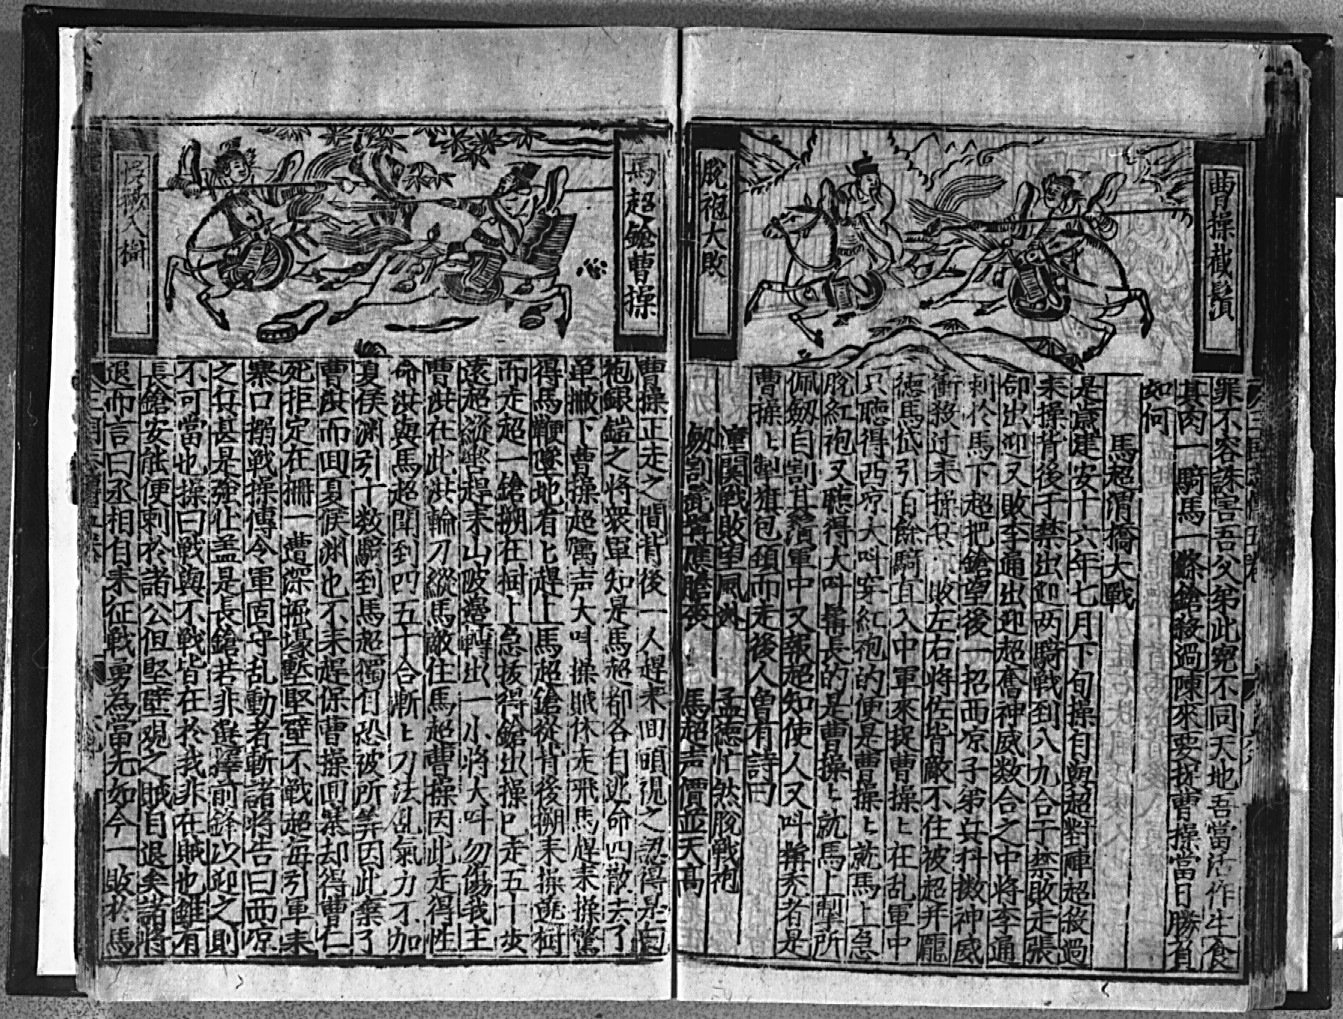 曹操截鬚
脫袍大敗
罪不容誅害吾父弟此寃不同天地吾當活作生食
其肉一騎馬一條鎗發過陣來要捉曹操當日勝負
如何
馬超渭橋大戰
是歲建安十六年七月下旬操自與超對陣超殺過
來操背後于禁出迎两騎戰到八九合于禁敗走張
郃出迎又敗李通出迎超奮神威数合之中將李通
刺於馬下超把鎗望後一招西凉子弟兵抖擞神威
衝殺过来操兵敗左右將佐皆敵不住被超并龐
德馬岱引百餘騎直入中軍來捉曹操匕在乱軍中
只聽得西凉大叫穿紅袍的便是曹操匕就馬上急
脫紅袍又聽得大叫髯長的是曹操匕就馬上掣所
佩劔自割其鬚軍中又報超知使人又叫髯秃者是
曹操匕掣旗包頚而走後人曽有詩曰
潼関戰敗望風
孟德忙然脫戰袍
劔割髭髯應膽丧
馬超声價並天高
馬超鎗曹操
悮搠入樹
曹操正走之間背後一人趕来回頭視之認得是白
袍銀鎧之将衆軍知是馬超都各自逃命四散去了
单撇下曹操超厲声大叫操賊休走飛馬趕来操驚
得馬鞭墜地看匕趕上馬超鎗從背後搠来操遶樹
而走超一鎗搠在樹上急拔得鎗出操已走五十步
遠超縱馬趕来山坡邊轉出一小將大叫勿傷我主
曹洪在此洪輪刀縱馬敵住馬超曹操因此走得性
命洪與馬超鬪到四五十合漸匕刀法乱氣力不加
夏侯渊引十数騎到馬超獨自恐被所筭因此棄了
曹洪而回夏侯渊也不来趕保曹操回寨却得曹仁
死拒定在柵一曹深掘壕塹堅壁不戰超每引軍来
寨口搦戰操傳令軍固守乱動者斬諸將告曰西凉
之兵甚是強壮盖是長鎗若非選擇前鋒以迎之則
不可當也操曰戰與不戰皆在於我非在賊也雖有
長鎗安能便刺於諸公但堅壁覌之賊自退矣諸將
退而言曰丞相自来征戰勇為當先如今一敗於馬